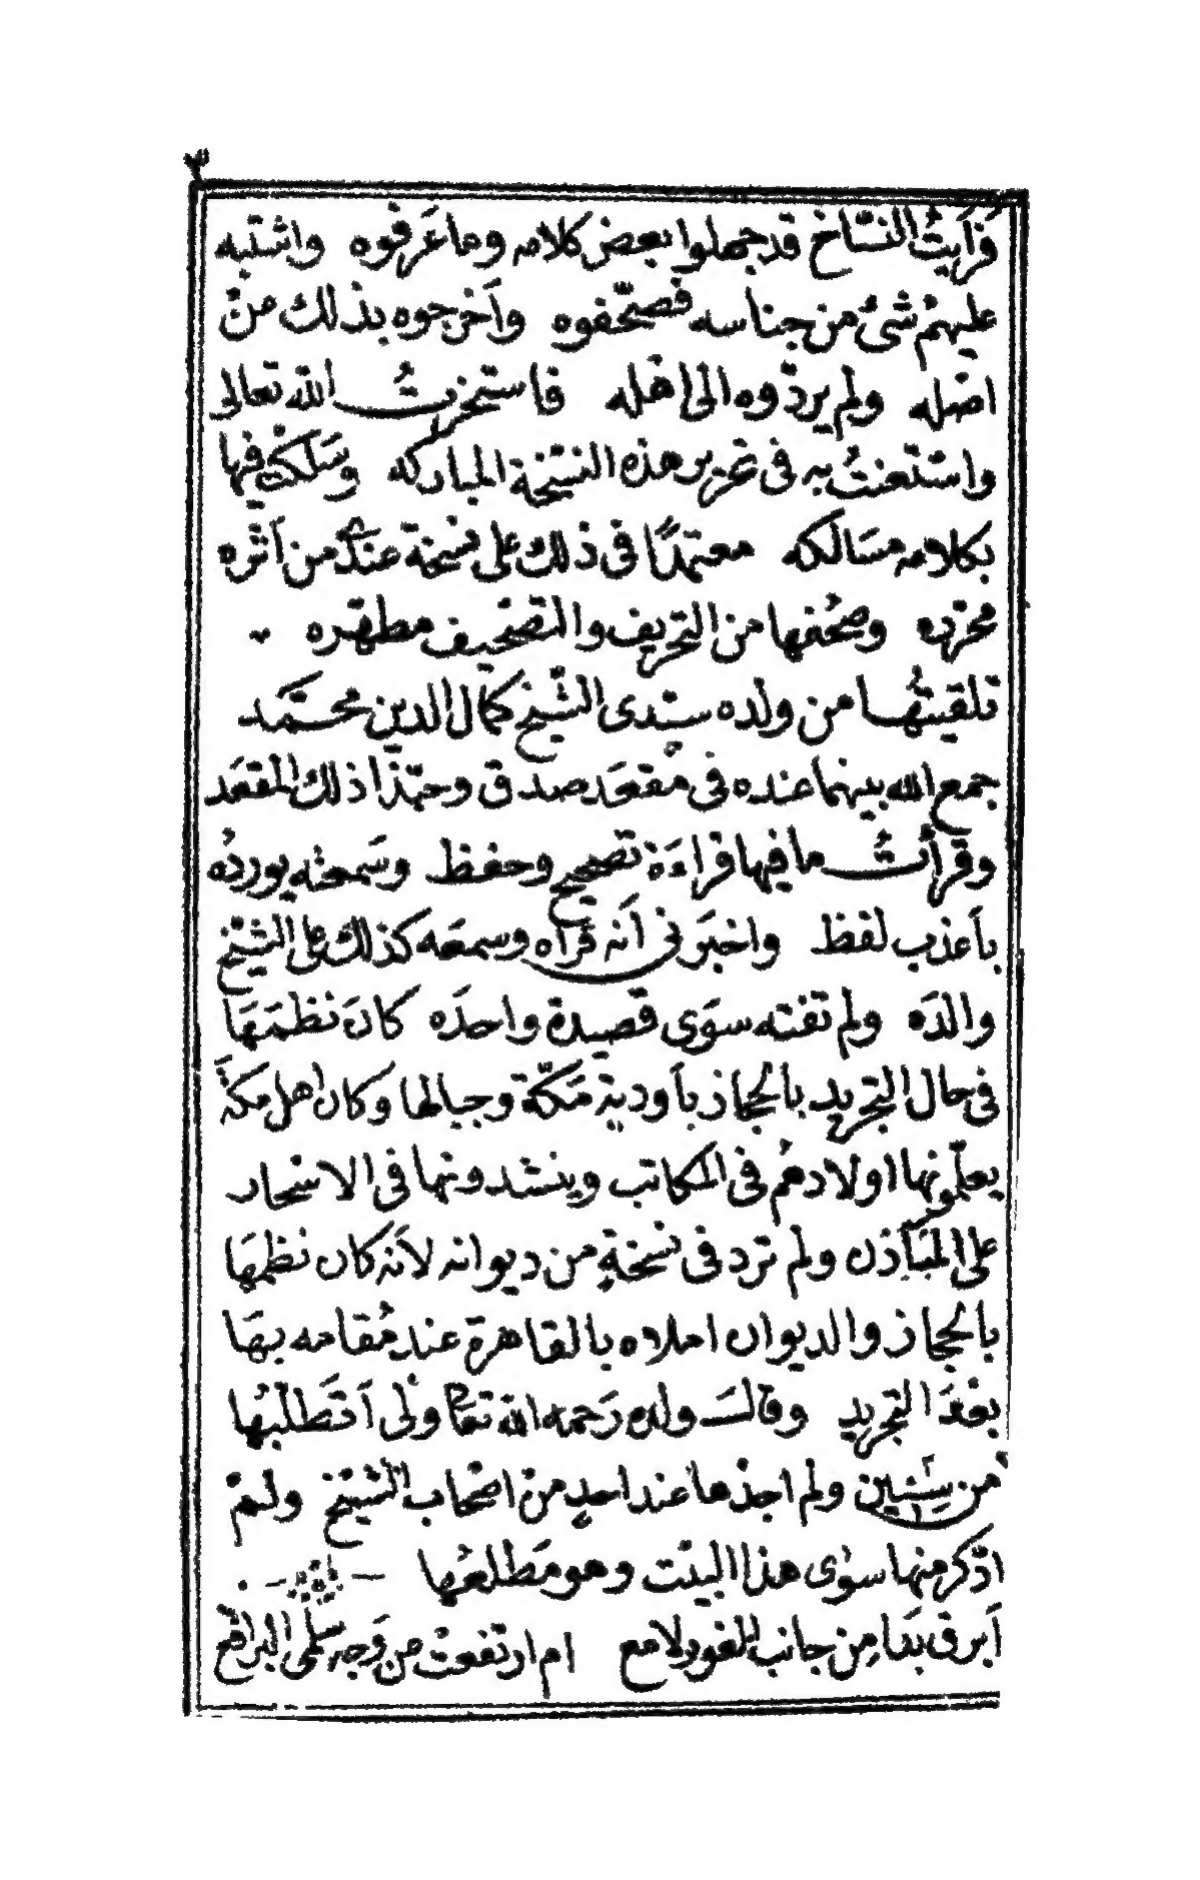 ٣
فرَأيتُ النسَّاخ قد جهلوا بعض كلامه وما عَرفوه واشتبه
عليهمْ شئ من جناسه فصحّفوه وأخرجوه بذلك منْ
اصْله ولم يردّوه الى اهْله فاستخرتُ الله تعالى
واسْتعنتُ به فى تحرير هذه النسْخة المباركه وسَلكتُ فيها
بكلامه مسَالكه معتمدًا فى ذلك على نسْخة عندى من أثره
محرّره وصحُفها من التحريف والتصْحيف مطهّره
تلقيتُها من ولده سيّدى الشّيخ كمال الدين محمَّد
جمع الله بينهما عنده فى مقعَد صدق وحبّذا ذلك المقعَد
وقرأتُ ما فيها قراءَة تصحيح وحفظ وسَمعتُه يوردُه
بأعذب لفظ واخبَرنى أنه قرَأه وسمعَه كذلك على الشيْخ
والدَه ولم تفته سوَى قصيدة واحدَه كانَ نظمَهَا
فى حال التجريد بالحجاز بأودية مَكّة وجبالها وكان اهل مكةَ
يعلّمونها اولادهُم فى المكاتب وينشدونها فى الاسْحار
على المَآذن ولم ترد فى نسْخةٍ من ديوانه لأنه كان نظمهَا
بالحجاز والديوان املاه بالقاهرة عند مُقامه بهَا
بعْدَ التجريد وقالَ ولده رَحمه الله تعالى ولى أتَطَلّبُها
من سِنين ولم اجدْها عند احدٍ منْ اصْحاب الشيْخ ولمْ
اذكر منها سوٰى هذا البيْت وهو مَطلعُها
أبرق بَدَا مِن جانب الغور لامع ام ارتفعتْ عن وَجه سَلْمى البراقع